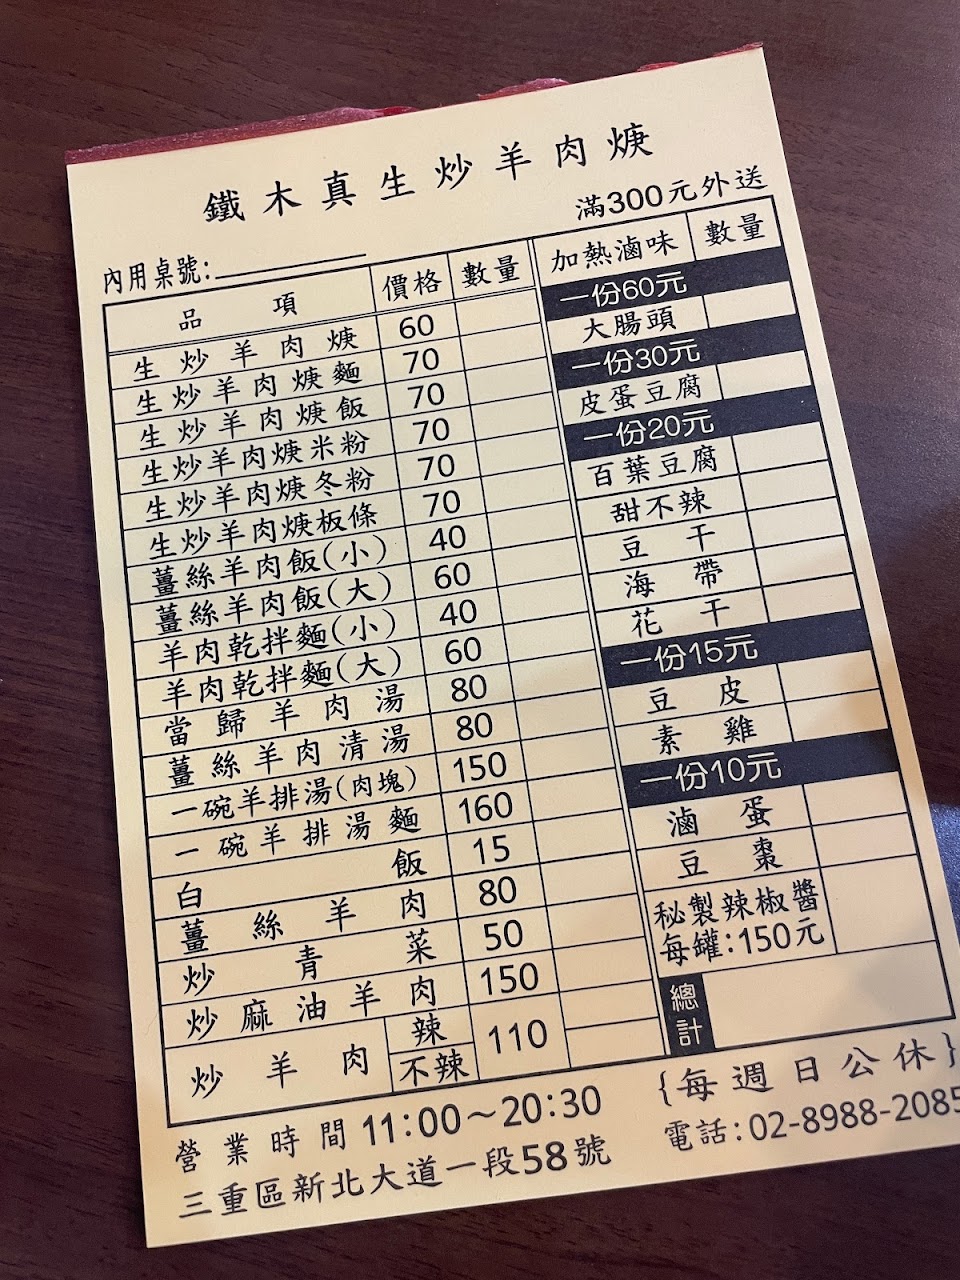 鐵木真生炒羊肉焿
滿300元外送
內用桌號:
品項 價格 數量
生炒羊肉焿 60
生炒羊肉焿麵 70
生炒羊肉焿飯 70
生炒羊肉焿米粉 70
生炒羊肉焿冬粉 70
生炒羊肉焿板條 70
薑絲羊肉飯(小) 40
薑絲羊肉飯(大) 60
羊肉乾拌麵(小) 40
羊肉乾拌麵(大) 60
當歸羊肉湯 80
薑絲羊肉清湯 80
一碗羊排湯(肉塊) 150
一碗羊排湯麵 160
白飯 15
薑絲羊肉 80
炒青菜 50
炒麻油羊肉 150
炒羊肉 辣 110
不辣
加熱滷味 數量
一份60元
大腸頭
一份30元
皮蛋豆腐
一份20元
百葉豆腐
甜不辣
豆干
海帶
花干
一份15元
豆皮
素雞
一份10元
滷蛋
豆棗
秘製辣椒醬
每罐:150元
總計
營業時間11:00~20:30 {每週日公休}
三重區新北大道一段58號 電話:02-8988-2085